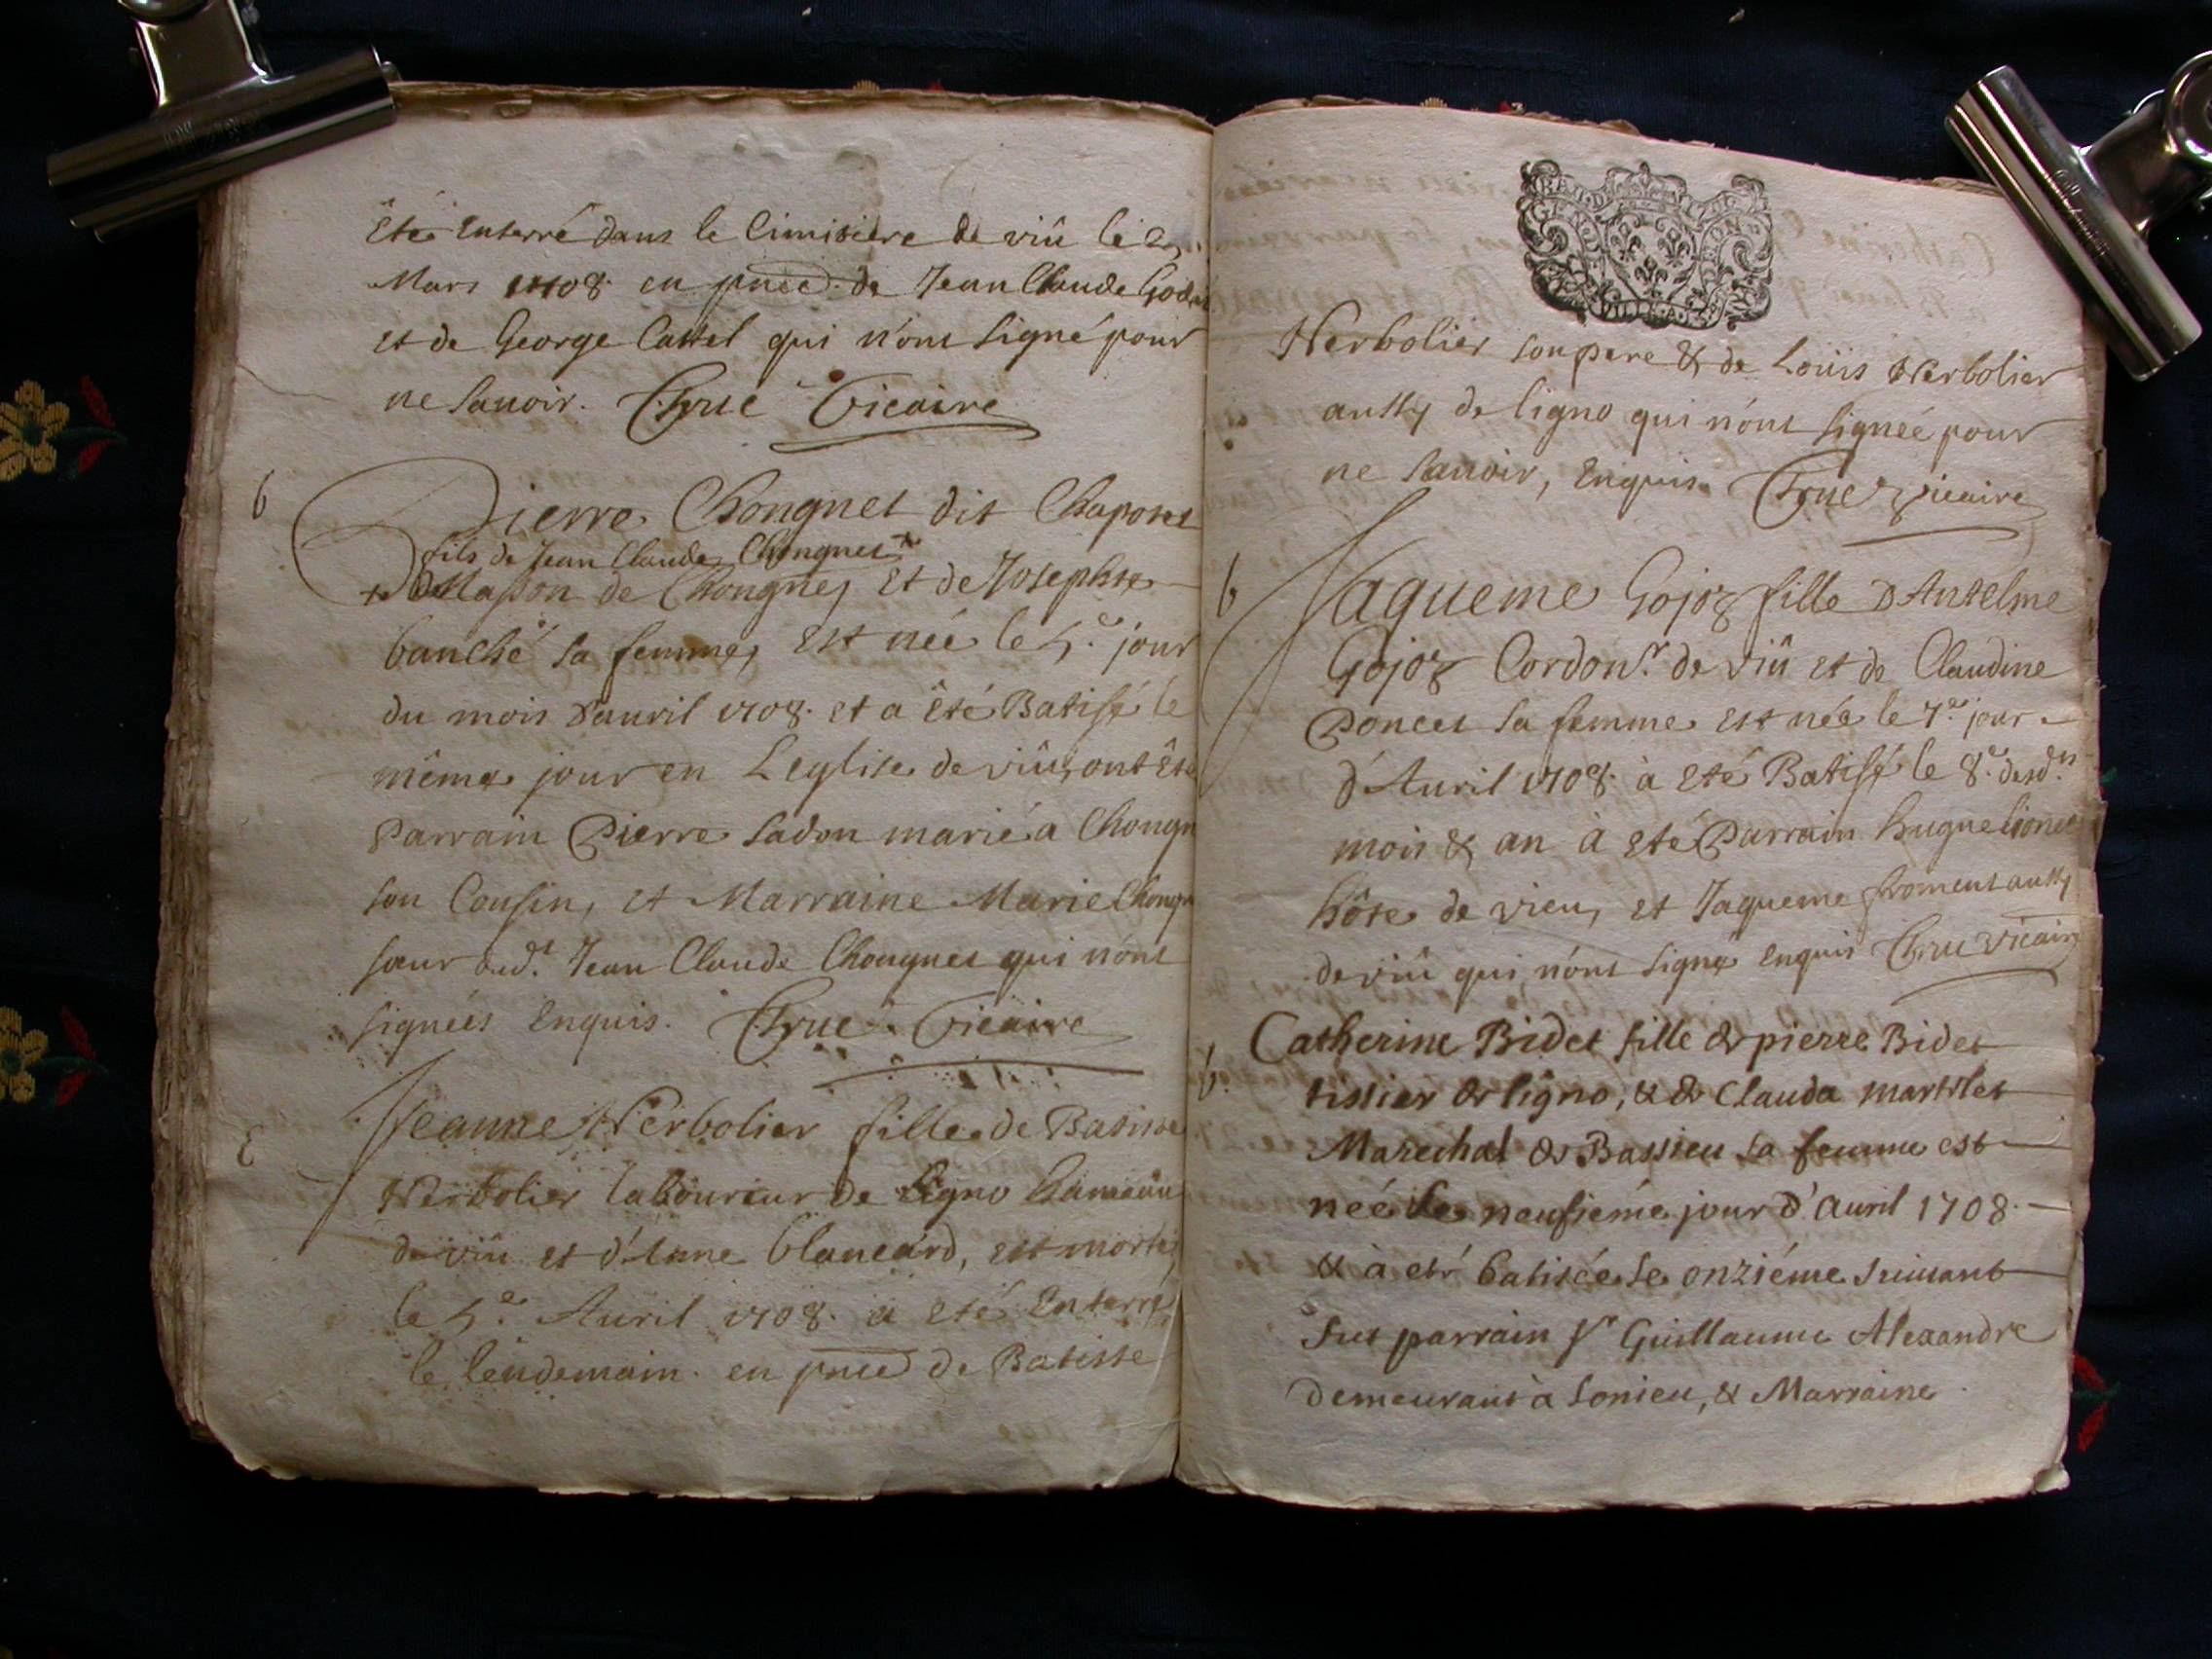 êté enterré dans le Cimitiere de viû le 2
Mars 1708. en pnce de Jean Claude
et de George Cattel qui n'ont signé pour
ne sauoir. Truc Vicaire
b
Pierre Chongnet dit Chaponet
fils de Jean Claude Chongnet +
+ Masson de Chongnes et de Josephte
banché sa femme, est née le 5.e jour
du mois d'auril 1708. et a êté Batisé le
même jour en Leglise de viû, ont êté
Parrain Pierre Ladon marié a Chongn
son Cousin, et Marraine Marie Chongn
sœur dud.t Jean Claude Chongnet qui n'ont
signées enquis. Truc Vicaire
E
Jeanne Nerbolier fille de Batiste
Nerbolier laboureur de Ligno hameau
de viû et d'Anne blancard, est morte
le 5.e Auril 1708. a eté enterré
le lendemain. en pnce de Batiste
GEN
Nerbolier son pere & de Loüis Nerbolier
aussy de ligno qui n'ont signée pour
ne sauoir, enquis. Truc Vicaire
b
Jaqueme Gojoz fille d'Antelme
Gojoz Cordon.r de viû et de Claudine
Poncet sa femme est née le 7.e jour
d'Auril 1708. à eté Batisé le 8.e desd.ts
mois & an à eté Parrain hugue
hôte de vieu, et Jaqueme froment aussy
de viû qui n'ont signé enquis Truc Vicaire
b.
Catherine Bidet fille de pierre Bidet
tissier de ligno, & de Clauda martelet
Marechal de Bassieu sa femme est
née le neufiéme jour d'auril 1708.
& à eté batisée le onziéme suiuant
fut parrain sr Guillaume Alexandre
demeurant à Sonieu, & Marraine